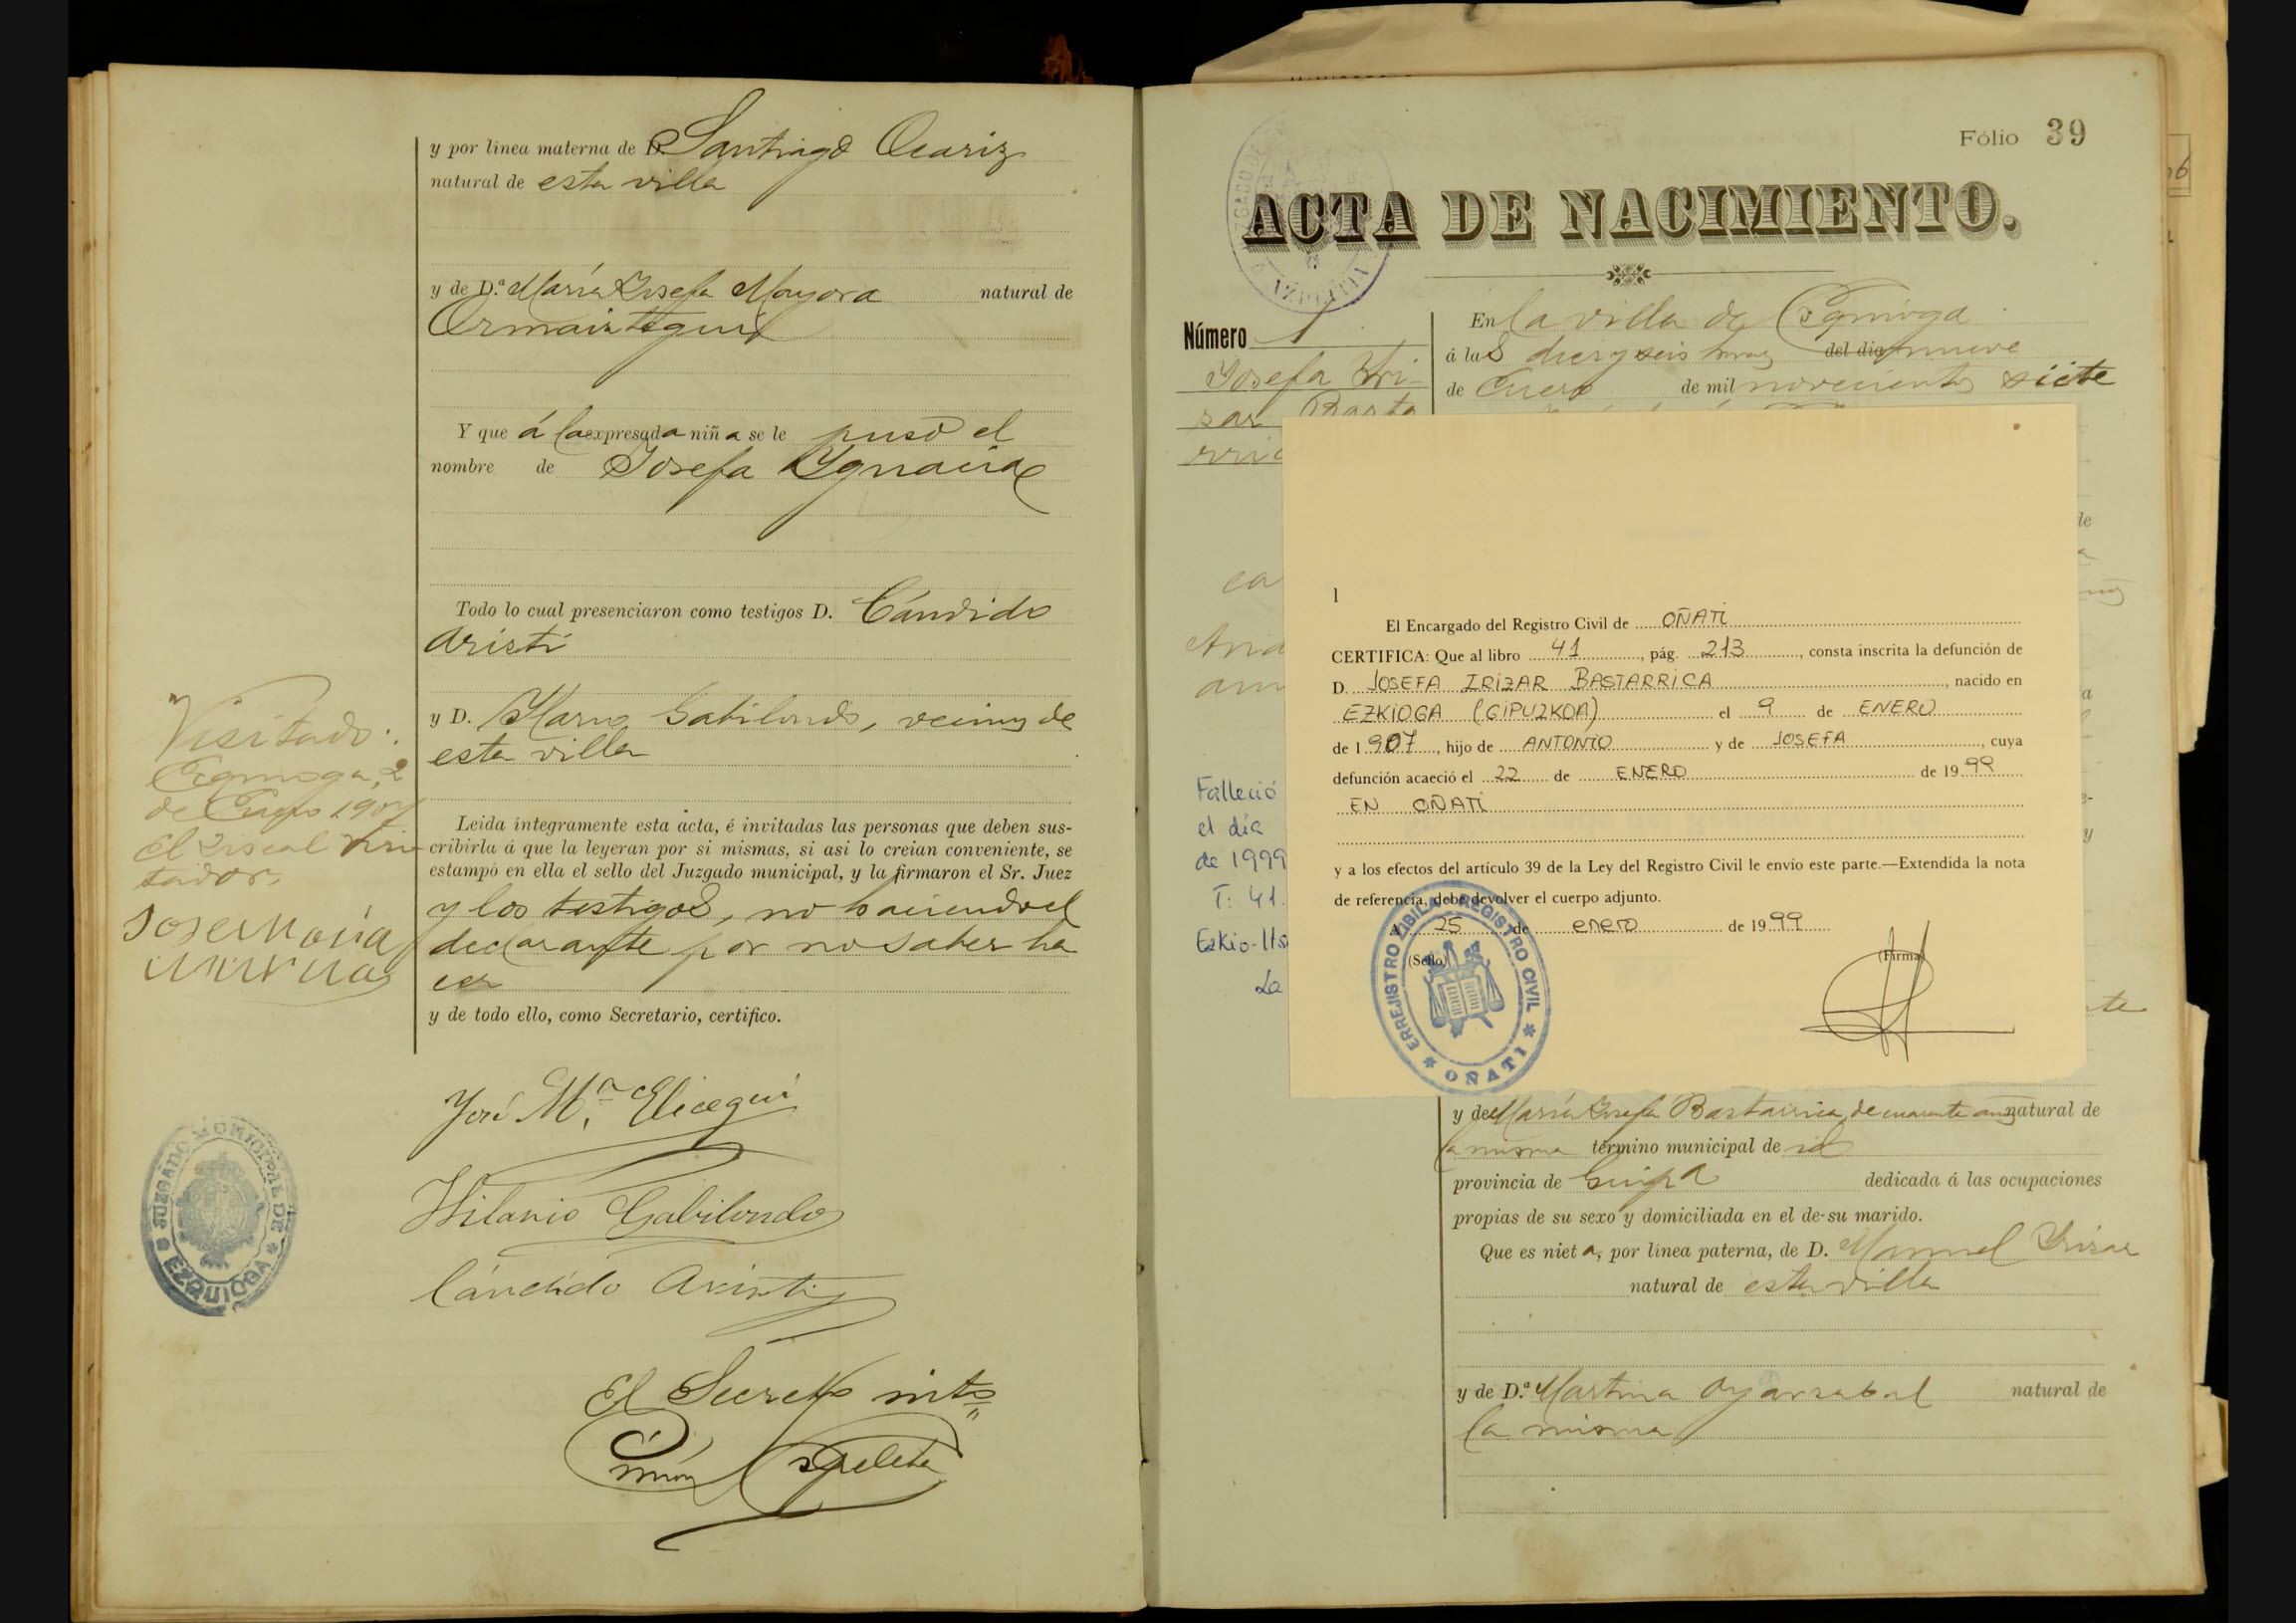 y por línea materna de D. Santiago Ocariz
natural de esta villa
y de D.ª María Josefa Mayora natural de
Ormaiztegui
Y que á la expresada niña se le puso el
nombre de Josefa Ygnacia
Todo lo cual presenciaron como testigos D. Cándido
Aristi
y D. Hilario Gabilondo, vecinos de
esta villa
Leida íntegramente esta acta, é invitadas las personas que deben sus-
cribirla á que la leyeran por si mismas, si asi lo creian conveniente, se
estampó en ella el sello del Juzgado municipal, y la firmaron el Sr. Juez
y los testigos, no haciendo el
declarante por no saber ha
cer
y de todo ello, como Secretario, certifico.
Visitado.
Ezquioga, 2
de Enero 1907
El Fiscal Visi
tador.
José María
José M.ª Elicegui
Hilario Gabilondo
Cándido Aristi
El Secretº intº
JUZGADO MUNICIPAL DE
EZQUIOGA
Fólio 39
ACTA DE NACIMIENTO.
Número 1
Josefa Yri-
zar Basta
rrica
En la villa de Ezquioga
á las diez y seis horas del dia nueve
de Enero de mil novecientos siete
Falleció
el día
de 1999
T: 41.
Ezkio-Its
La
1
El Encargado del Registro Civil de OÑATI
CERTIFICA: Que al libro 41, pág. 213, consta inscrita la defunción de
D. JOSEFA IRIZAR BASTARRICA, nacido en
EZKIOGA (GIPUZKOA) el 9 de ENERO
de 1907, hijo de ANTONIO y de JOSEFA, cuya
defunción acaeció el 22 de ENERO de 1999
EN OÑATI
y a los efectos del artículo 39 de la Ley del Registro Civil le envío este parte.—Extendida la nota
de referencia, debe devolver el cuerpo adjunto.
A 25 de enero de 1999
(Sello) (Firma)
ERREJISTRO ZIBILA REGISTRO CIVIL
OÑATI
y de María Josefa Bastarrica, de cuarenta años natural de
la misma término municipal de id
provincia de Guipª dedicada á las ocupaciones
propias de su sexo y domiciliada en el de su marido.
Que es nieta, por línea paterna, de D. Manuel Yrizar
natural de esta villa
y de D.ª Martina Oyarzabal natural de
la misma